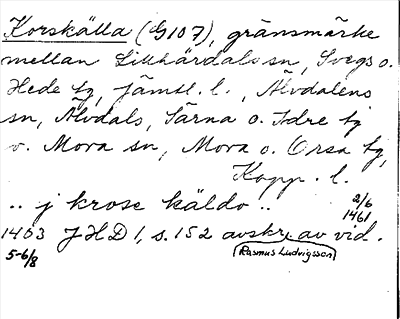 Korskälla (G107), gränsmärke
mellan Lillhärdals sn, Svegs o.
Hede tg, Jämtl. l., Älvdalens
sn, Älvdals, Särna o. Idre tg
o. Mora sn, Mora o. Orsa tg,
Kopp. l.
.. j krose käldo .. 2/6 1461
1403 JHD 1, s. 152 avskr. av vid.
5-6/8 Rasmus Ludvigsson